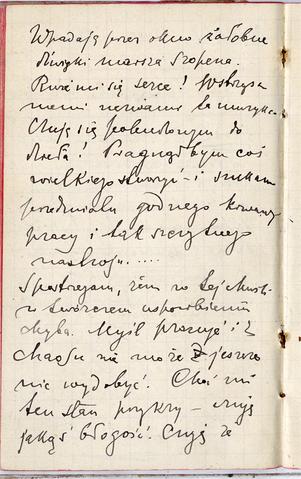 Wpadają przez okno żałobne
dźwięki marsza Szopena.
Rwie mi się serce! Wstrząsa
memi nerwami ta muzyka.
Czuję się pobudzonym do
dzieła! Pragnąłbym coś
wielkiego stworzyć – i szukam
przedmiotu godnego
pracy i tak szczytnego
nastroju.....
Spostrzegam, żem w tej chwili
w twórczem usposobieniu
chyba. Myśl pracuje i z
chaosu nie może jeszcze
nic wydobyć. Choć mi
ten stan przykry – czuję
jakąś błogość. Czuję że